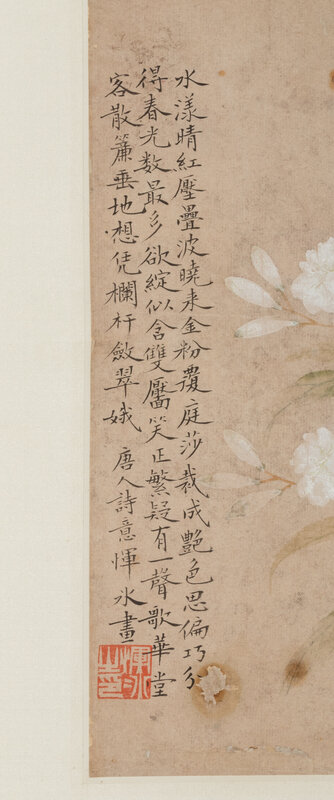 水漾晴紅壓疊波曉来金粉覆庭莎裁成艷色思偏巧分
得春光数最多欲綻似含雙靨笑正繁疑有一聲歌華堂
客散簾垂地想凭欄杆斂翠娥 唐人詩意惲氷畫
惲氷之印